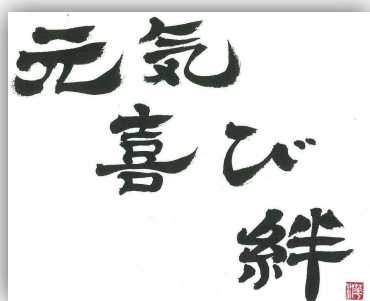 元気
喜び
絆